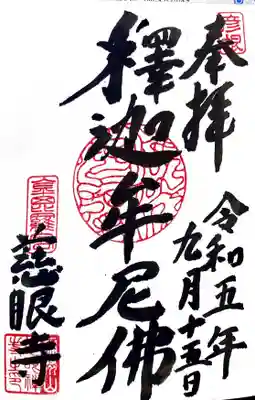 奉拝
令和五年
九月十五日
釋迦牟尼佛
慈眼寺